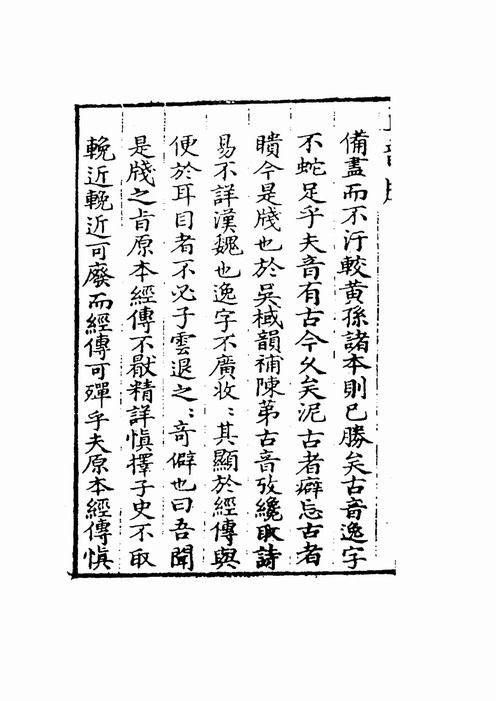 備盡而不汙較黄孫諸本則已勝矣古音逸字
不蛇足乎夫音有古今久矣泥古者癖忘古者
瞶今是牋也於吳棫韻補陳苐古音攷纔取詩
易不詳漢魏也逸字不廣收〻其顯於經傳與
便於耳目者不必子雲退之〻竒僻也曰吾聞
是牋之㫖原本經傳不猒精詳愼擇子史不取
輓近輓近可廢而經傳可殫乎夫原本經傳愼